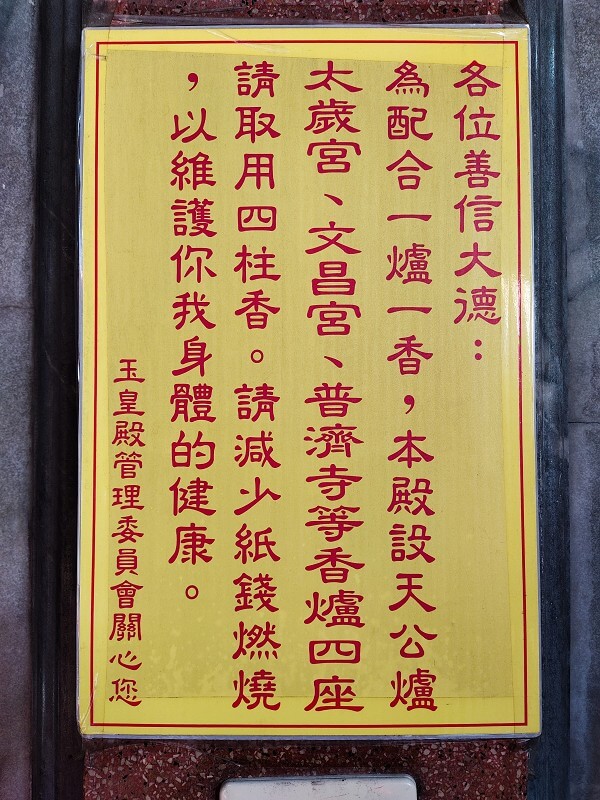 各位善信大德：
為配合一爐一香，本殿設天公爐
太歲宮、文昌宮、普濟寺等香爐四座
請取用四柱香。請減少紙錢燃燒
，以維護你我身體的健康。
玉皇殿管理委員會關心您